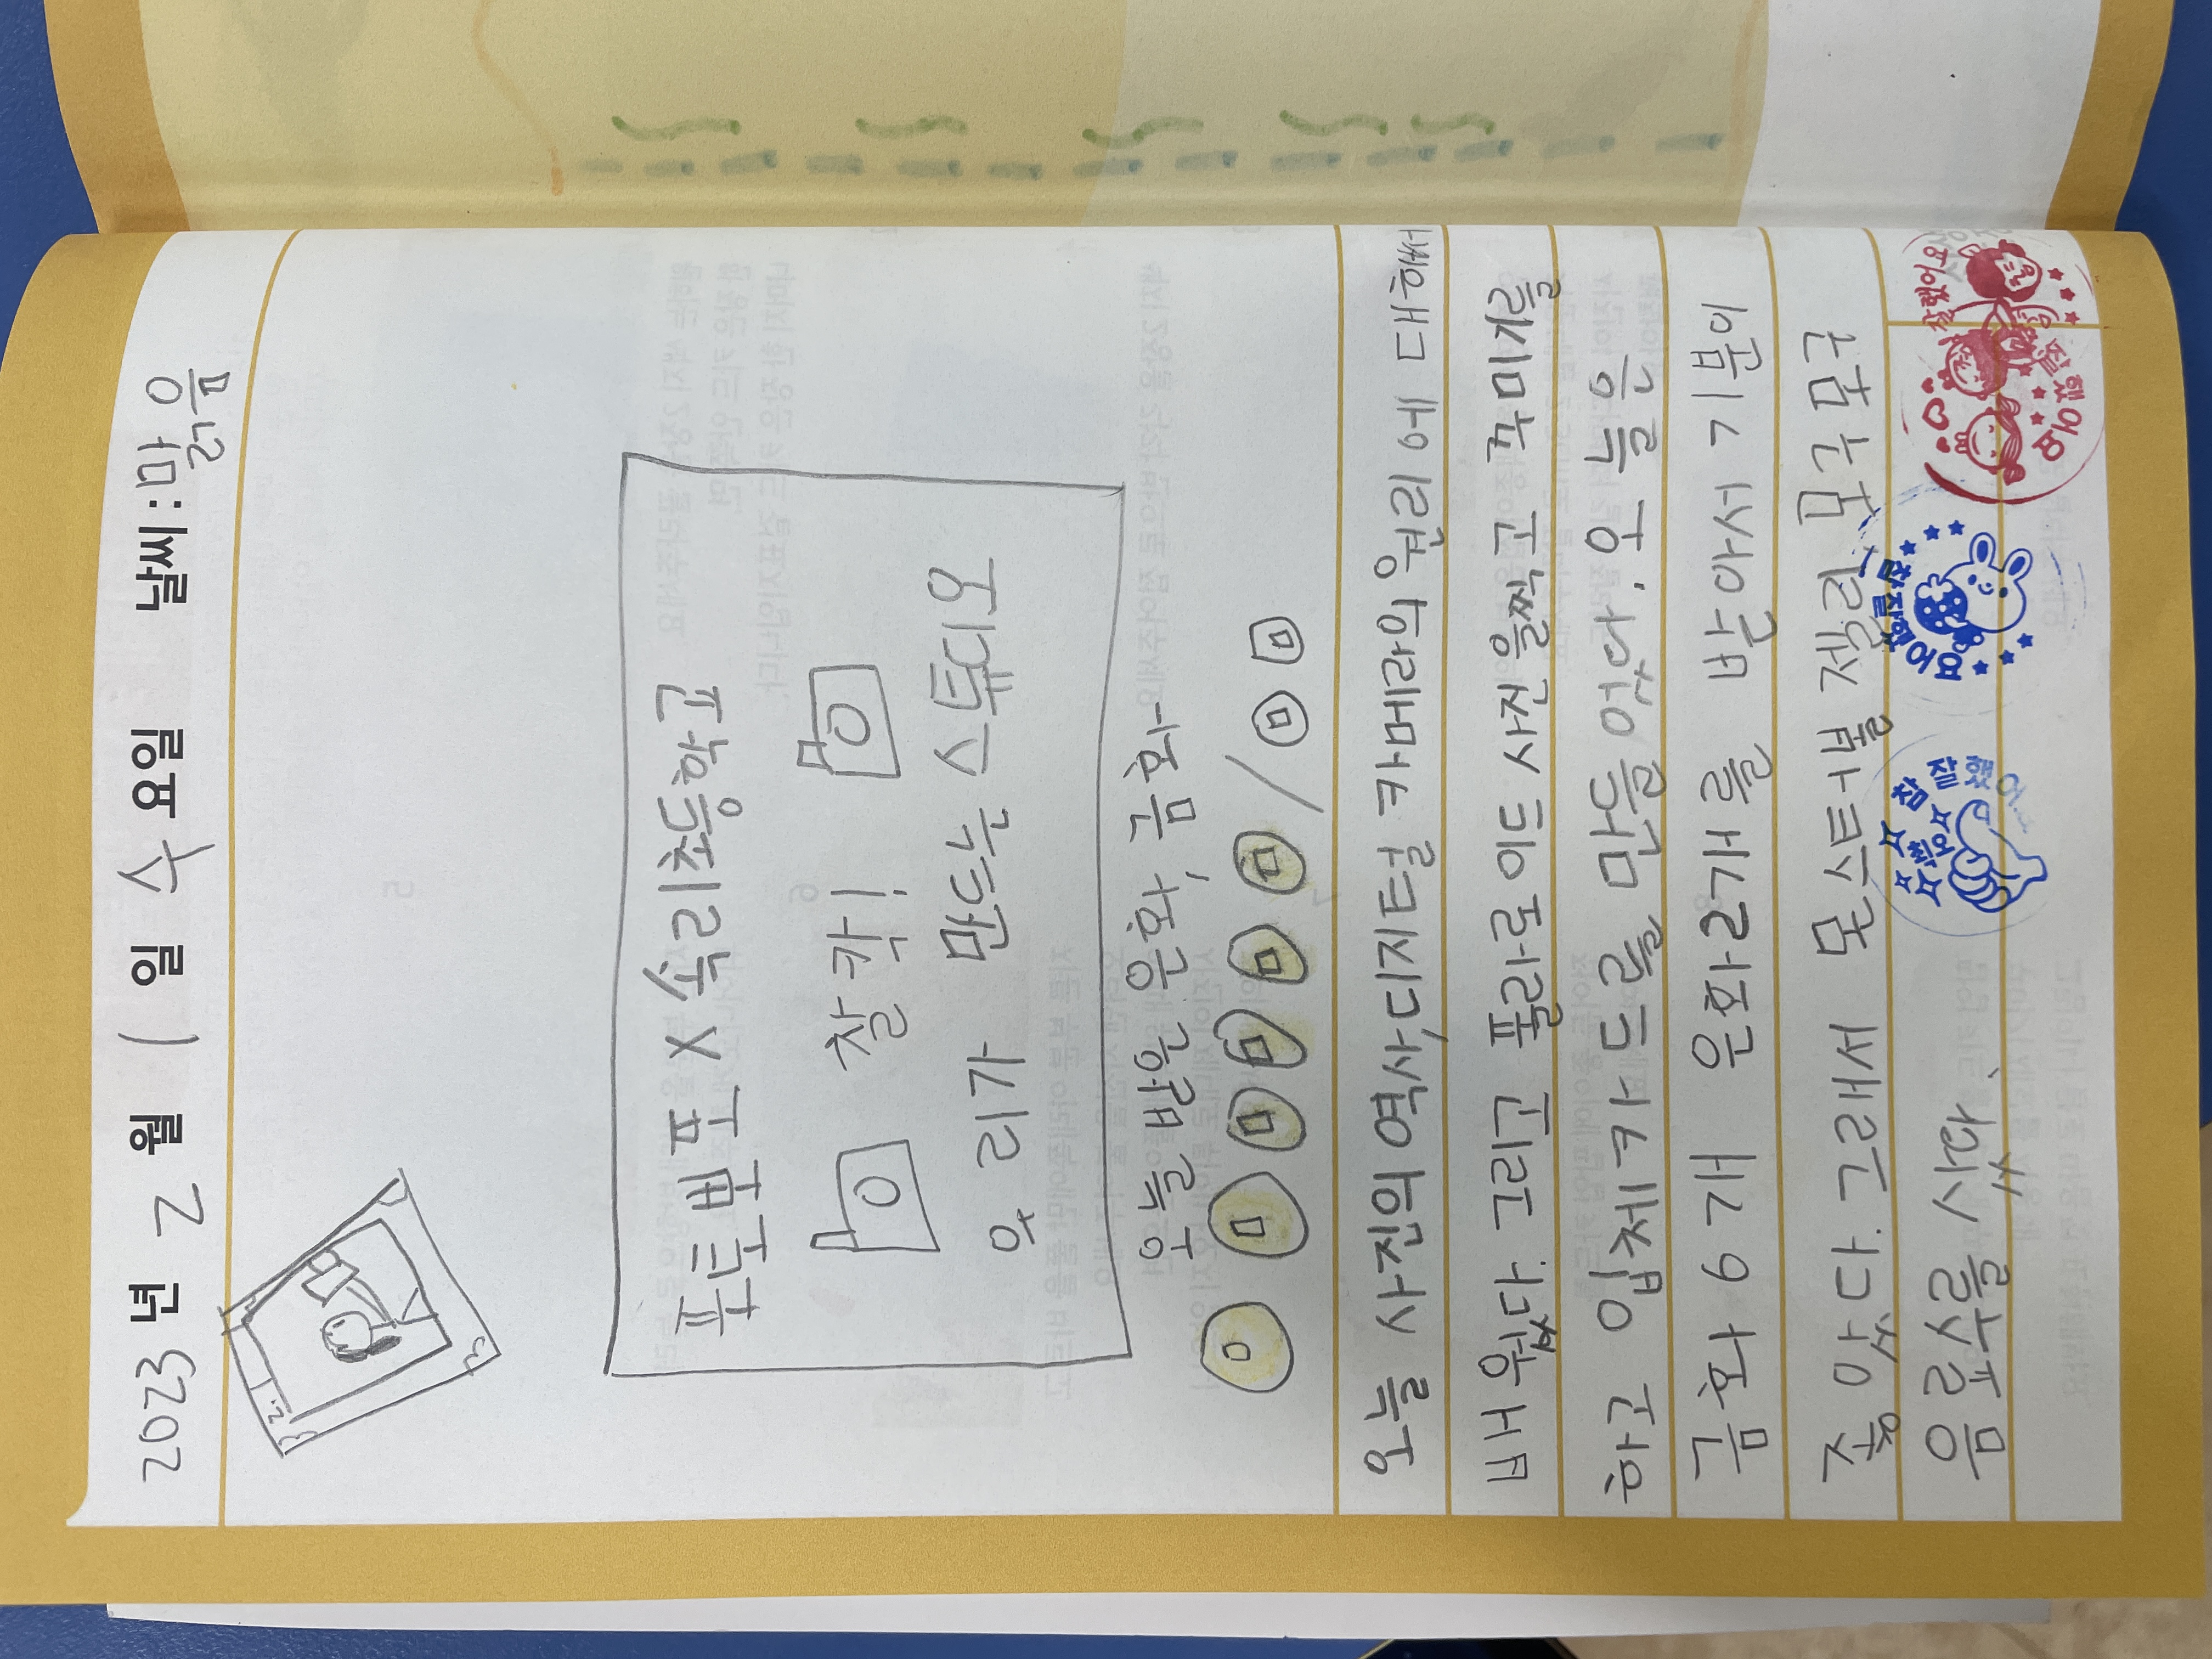 2023 년 2 월 1 일 수 요일 날씨 : 맑음
3 2. 1
3
포토뽀포 X 속리초등학교
찰칵!
우리가 만드는 스튜디오
오늘 받은 은화, 금화
오늘 사진의 역사,디지털 카메라의 원리에 대해서
배웠다. 그리고 풀라로이드 사진을찍고 꾸미기를
하고 입체카드를 만들었다. 오늘은
금화 6개 은화2개를 받아서 기분이
좋았다. 그래서 몬스터볼 젤리, 모구모구
음료수를 샀다.
참 잘했어
최고
참 잘했어요
잘했어요